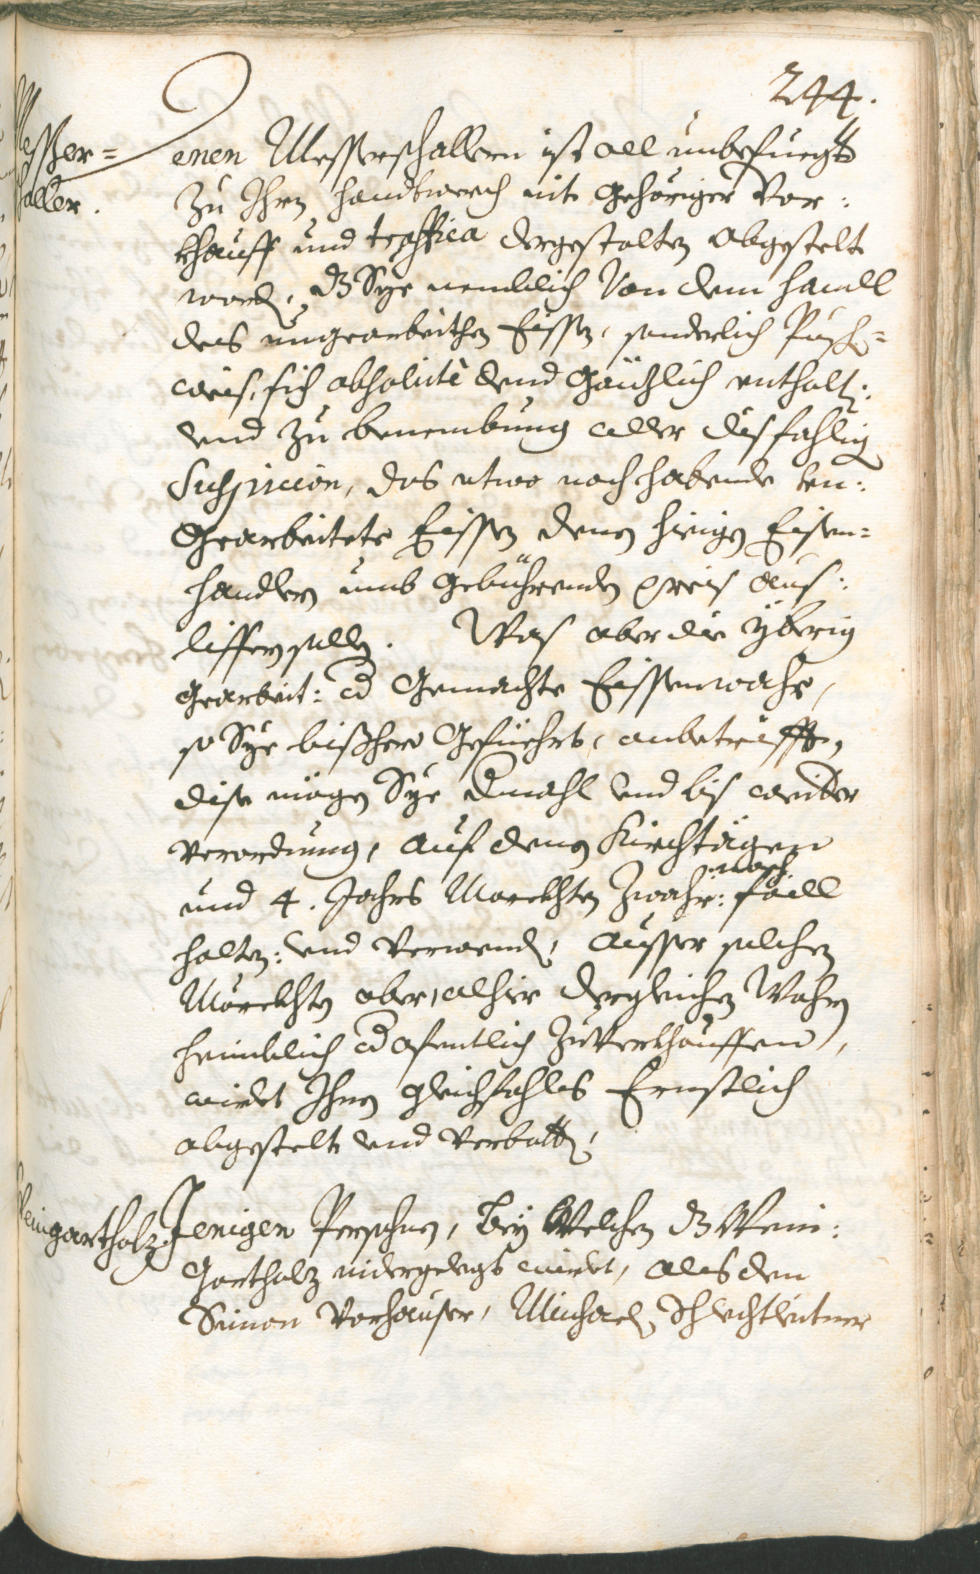 244.
Messer=
schaller.
Denen Messerschallern ist all unbefuegte
zu Ihrn handtwerch nit gehöriger Vor:
khauff und traffica dergestalten abgestelt
word, dz Sye nemblich von dem handl
des ungearbeithen Eissen, sonderlich Pusch=
weis, sich absolutè vnd gänzlich enthalt:
vnd zu benembung aller disfahlig
Suspicion, das etwo noch habende un:
gearbeitete Eissen denen hieigen Eisen=
handlern umb gebührenden preis aus:
liffern sollen. Was aber die yberig
gearbeit: vnd gemachte Eissenwahr,
so Sye bißhero gefüehrt, anbetrifft,
dise mögen Sye dermahl vnd bis weiter
verordnung, auf denen Kirchtägen
und 4. Jahrs Märckhten zwahr: noch faill
halten: vnd verwend, ausser solchen
Märckhten aber, alhier dergleichen Wahrn
heimblich vnd ofentlich zuverkhauffen,
wirdet Ihnen gleichfahls Ernstlich
abgestelt vnd verbotten.
Weingartholz.
Jenigen Persohnen, bey Welchen dz Wein:
gartholz nidergelegt wirdet, als den
Simon Vorhauser, Michael Schlechtleitner